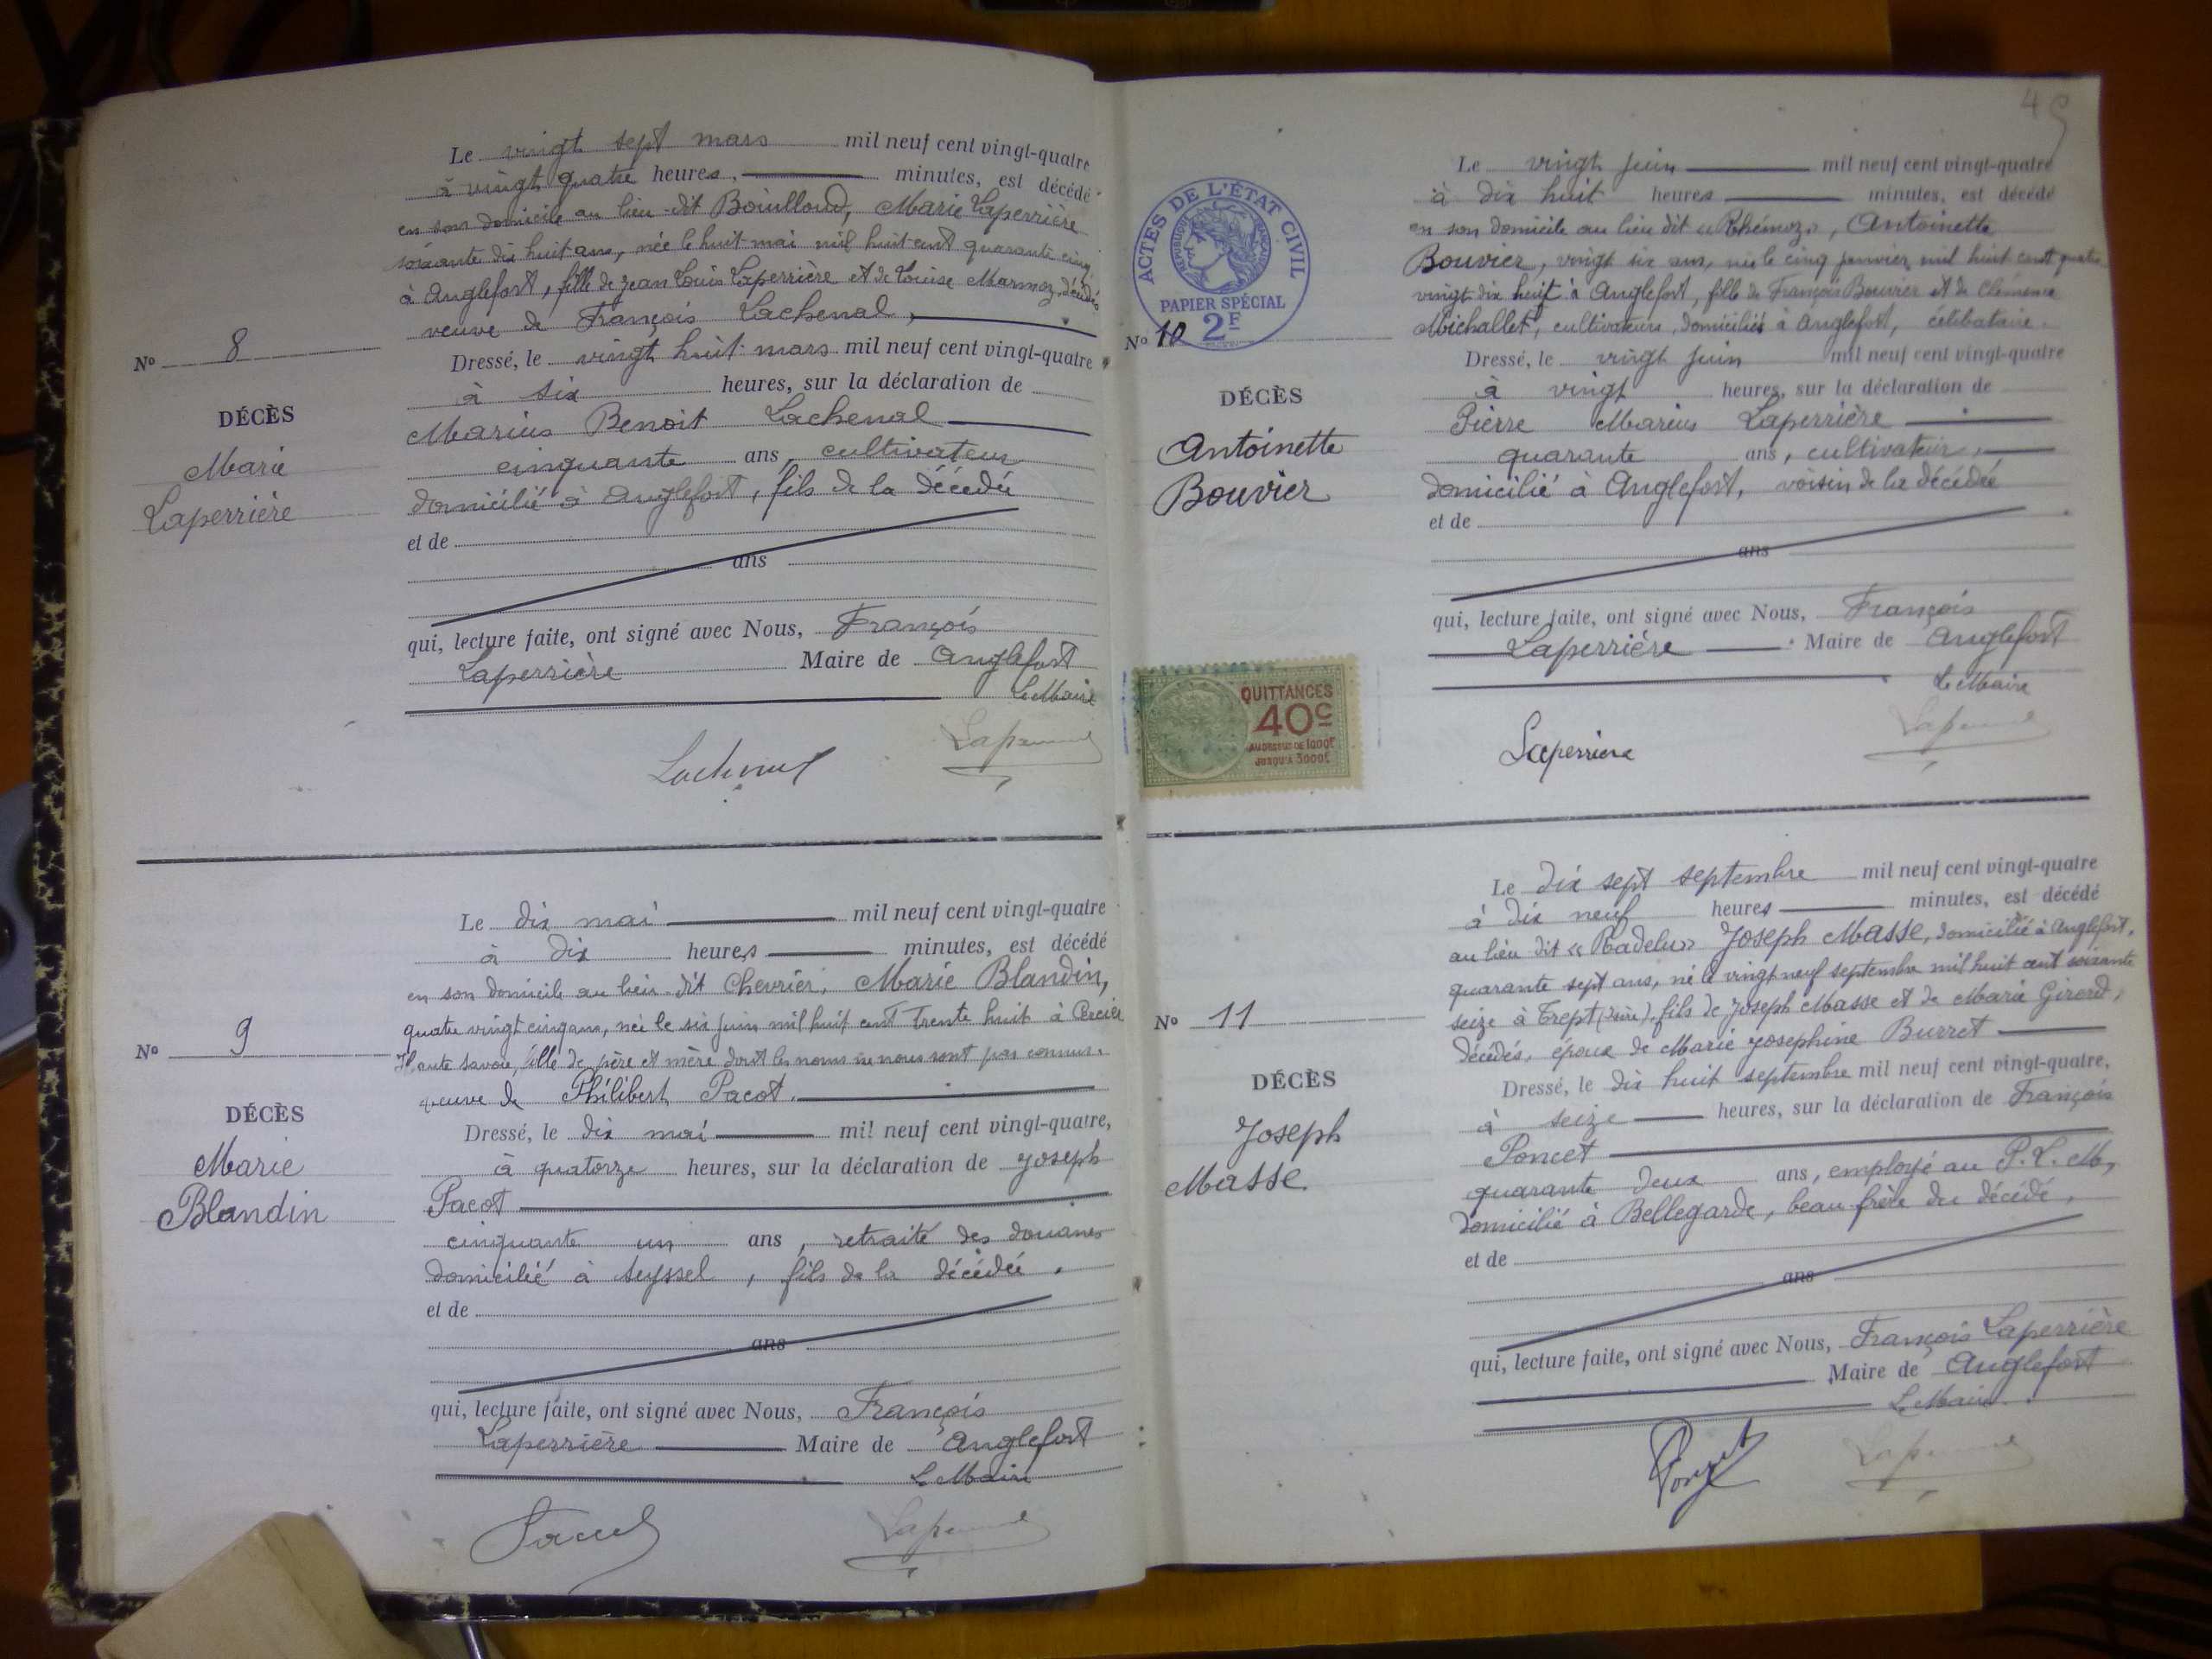 Le vingt sept mars mil neuf cent vingt-quatre
à vingt quatre heures, minutes, est décédé
en son domicile au lieu-dit Bouilloud, Marie Laperrière
soixante dix huit ans, née le huit mai mil huit cent quarante cinq
à Anglefort, fille de Jean Louis Laperrière et de Louise Marmoz, décédés
veuve de François Lachenal,
Nº 8
Dressé, le vingt huit mars mil neuf cent vingt-quatre
à six heures, sur la déclaration de
DÉCÈS
Marie
Laperrière
Marius Benoit Lachenal
cinquante ans, cultivateur
domicilié à Anglefort, fils de la décédée
et de
ans
qui, lecture faite, ont signé avec Nous, François
Laperrière Maire de Anglefort
Le Maire
Lachenal
Le dix mai mil neuf cent vingt-quatre
à dix heures minutes, est décédé
en son domicile au lieu-dit Chevrier, Marie Blandin,
quatre vingt cinq ans, née le six juin mil huit cent trente huit à
Nº 9
Haute Savoie, fille de père et mère dont les noms ne nous sont pas connus.
veuve de Philibert Pacot.
DÉCÈS
Marie
Blandin
Dressé, le dix mai mil neuf cent vingt-quatre,
à quatorze heures, sur la déclaration de Joseph
Pacot
cinquante un ans, retraité des douanes
domicilié à Seyssel, fils de la décédée.
et de
ans
qui, lecture faite, ont signé avec Nous, François
Laperrière Maire de Anglefort
Le Maire
49
ACTES DE L'ÉTAT CIVIL
RÉPUBLIQUE FRANÇAISE
PAPIER SPÉCIAL
2F
Nº 10
Le vingt juin mil neuf cent vingt-quatre
à dix huit heures minutes, est décédé
en son domicile au lieu dit « Rhémoz », Antoinette
Bouvier, vingt six ans, née le cinq janvier mil huit cent quatre
vingt dix huit à Anglefort, fille de François Bouvier et de Clémence
Michallet, cultivateurs, domiciliés à Anglefort, célibataire.
DÉCÈS
Antoinette
Bouvier
Dressé, le vingt juin mil neuf cent vingt-quatre
à vingt heures, sur la déclaration de
Pierre Marius Laperrière
quarante ans, cultivateur,
domicilié à Anglefort, voisin de la décédée
et de
ans
qui, lecture faite, ont signé avec Nous, François
Laperrière Maire de Anglefort
Le Maire
QUITTANCES
40c
AU DESSUS DE 1000F
JUSQU'A 3000F
Laperriere
Le dix sept septembre mil neuf cent vingt-quatre
à dix neuf heures minutes, est décédé
au lieu dit « Badelu » Joseph Masse, domicilié à Anglefort,
quarante sept ans, né le vingt neuf septembre mil huit cent soixante
seize à Trept (Isère), fils de Joseph Masse et de Marie Girerd,
décédés, époux de Marie Josephine Burret
Nº 11
DÉCÈS
Joseph
Masse
Dressé, le dix huit septembre mil neuf cent vingt-quatre,
à seize heures, sur la déclaration de François
Poncet
quarante deux ans, employé au P. L. M.,
domicilié à Bellegarde, beau-frère du décédé,
et de
ans
qui, lecture faite, ont signé avec Nous, François Laperrière
Maire de Anglefort
Le Maire
Poncet